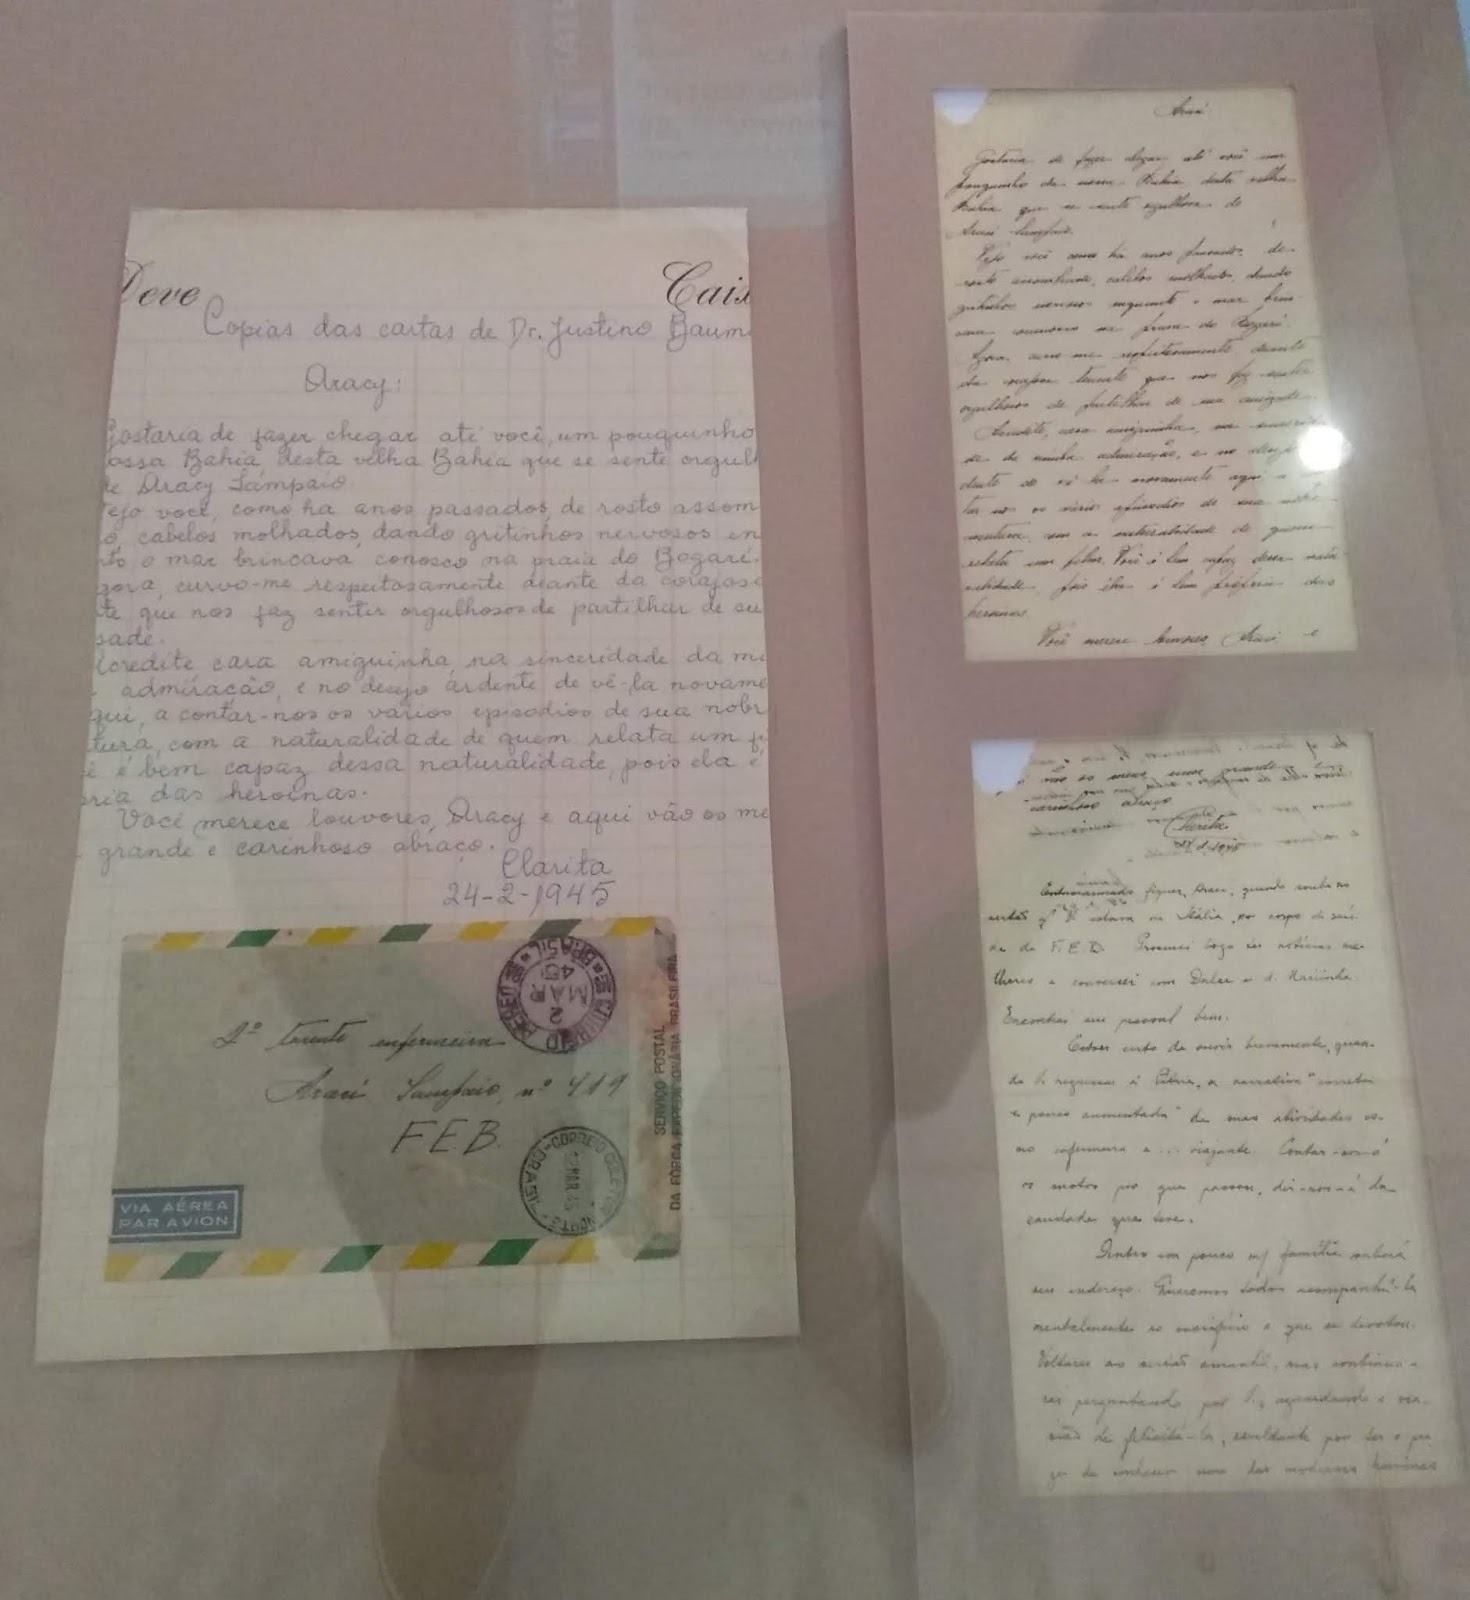 Deve Caix
Copias das cartas de Dr. Justino Baum
Aracy:
Gostaria de fazer chegar até você, um pouquinho
ossa Bahia, desta velha Bahia que se sente orgulh
de Aracy Sampaio.
ejo você, como ha anos passados, de rosto assom
o, cabelos molhados, dando gritinhos nervosos en
to o mar brincava conosco na praia do Bogari.
gora, curvo-me respeitosamente deante da corajos
te que nos faz sentir orgulhosos de partilhar de su
sade.
credite cara amiguinha, na sinceridade da mi
admiração, e no desejo árdente de vê-la novame
qui, a contar-nos os varios episodios de sua nobr
tura, com a naturalidade de quem relata um fi
ê é bem capaz dessa naturalidade, pois ela é
ria das heroinas.
Você merece louvores, Aracy e aqui vão os me
grande e carinhoso abraço.
Clarita
24-2-1945
2º Tenente enfermeira
Araci Sampaio, nº 419
FEB.
VIA AÉREA
PAR AVION
SERVIÇO POSTAL
DA FÔRÇA EXPEDICIONÁRIA BRASILEIRA
CORREIO
BRASIL
2 MAR 45
CORREIO COLETOR NORTE
BRASIL
MAR 45
Araci
Gostaria de fazer chegar até você um
pouquinho da nossa Bahia desta velha
Bahia que se sente orgulhosa de
Araci Sampaio.
Vejo você como há anos passados, de
rosto assombrado, cabelos molhados, dando
gritinhos nervosos enquanto o mar brin-
cava conosco na praia do Bogari.
Agora curvo-me respeitosamente deante
da corajosa tenente que nos faz sentir
orgulhosos de partilhar de sua amizade.
Acredite, cara amiguinha, na sinceridade
de minha admiração, e no desejo
ardente de vê-la novamente aqui a
os vários episódios de sua
com a naturalidade de quem
relata um filme. Você é bem capaz dessa natu-
ralidade, pois ela é bem própria das
heroinas.
Você merece louvores, Araci e
e vão os meus, num grande
carinhoso abraço
Clarita
figuei, Araci, quando soube no
sertão q/ V. estava na Itália, no corpo de saú-
de da F.E.B. Procurei logo ter notícias me-
lhores e conversei com Dulce e d.
Encontrei seu pessoal bem.
Estou certo de ouvir brevemente, quan-
do V. regressar à Pátria, a narrativa "correta
e pouco aumentada" de suas atividades co-
mo enfermeira e... viajante. Contar-nos-á
os sustos por que passou, dir-nos-á da
saudade que teve.
Dentro em pouco m/ família saberá
seu endereço. Queremos todos acompanhá-la
mentalmente no sacrifício a que se devotou.
Voltarei ao sertão amanhã, mas continua-
rei perguntando por V., aguardando a oca-
sião de felicitá-la, por ter o pra-
zer de conhecer uma das modernas heroinas